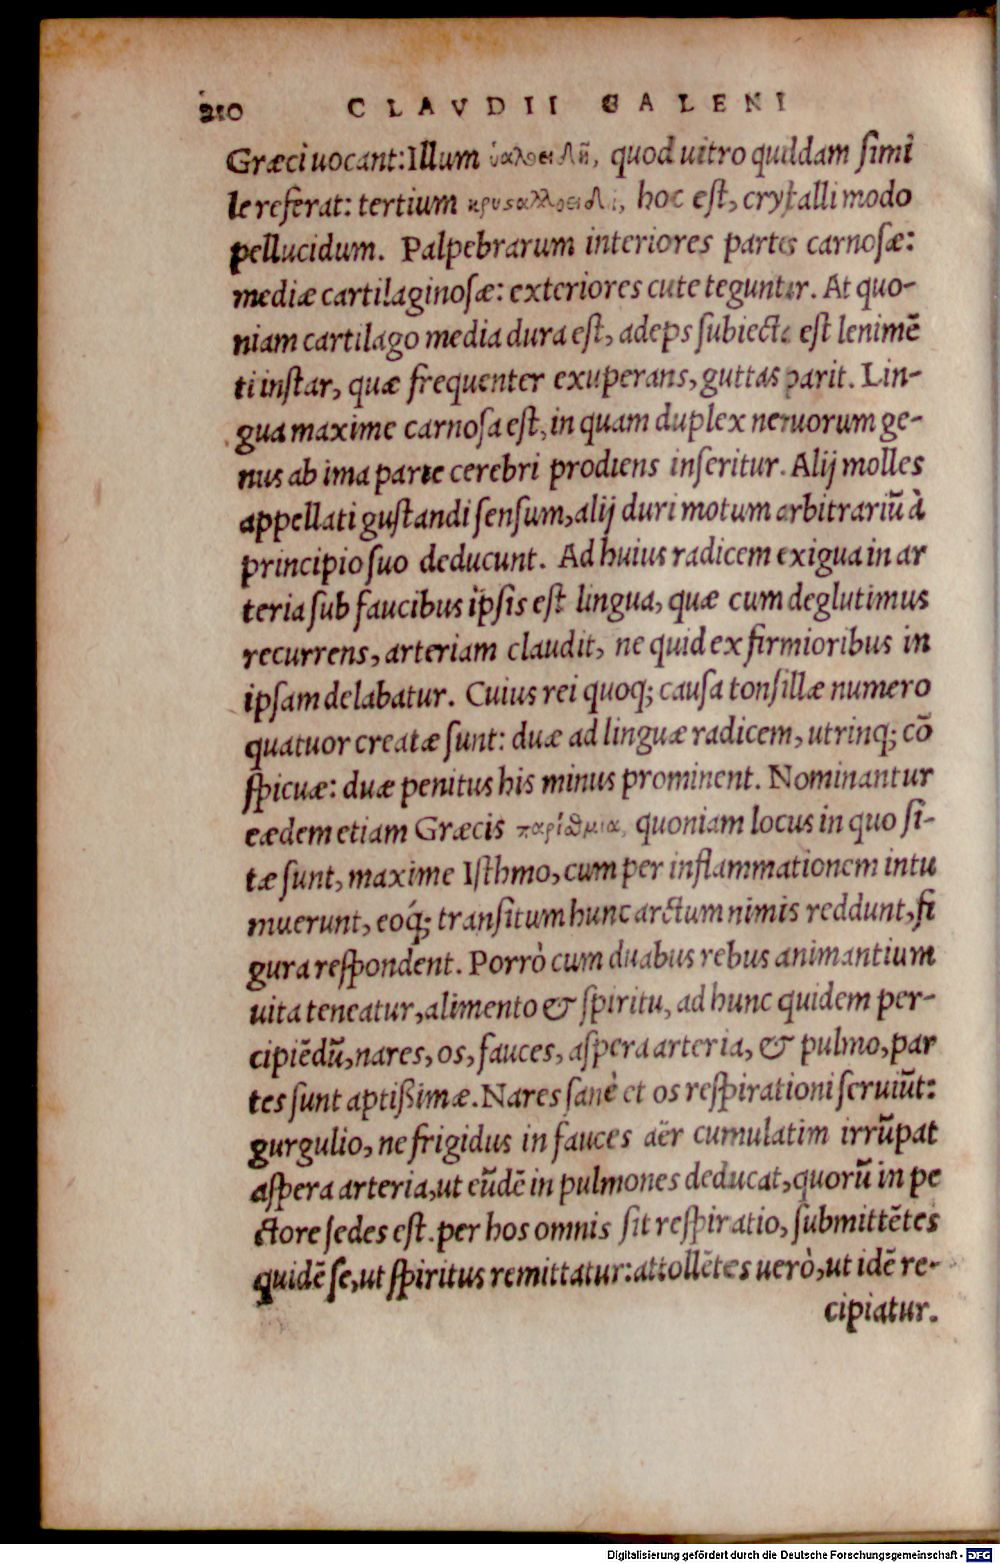 210 CLAVDII GALENI
Græci uocant: Illum ὑαλοειδῆ, quod uitro quiddam simi
le referat: tertium κρυσαλλοειδῆ, hoc est, crystalli modo
pellucidum. Palpebrarum interiores partes carnosæ:
mediæ cartilaginosæ: exteriores cute teguntur. At quo-
niam cartilago media dura est, adeps subiecta est lenimē
ti instar, quæ frequenter exuperans, guttas parit. Lin-
gua maxime carnosa est, in quam duplex neruorum ge-
nus ab ima parte cerebri prodiens inseritur. Alij molles
appellati gustandi sensum, alij duri motum arbitrariū à
principio suo deducunt. Ad huius radicem exigua in ar
teria sub faucibus ipsis est lingua, quæ cum deglutimus
recurrens, arteriam claudit, ne quid ex firmioribus in
ipsam delabatur. Cuius rei quoq; causa tonsillæ numero
quatuor creatæ sunt: duæ ad linguæ radicem, utrinq; cō
spicuæ: duæ penitus his minus prominent. Nominantur
eædem etiam Græcis παρίσθμια, quoniam locus in quo si-
tæ sunt, maxime Isthmo, cum per inflammationem intu
muerunt, eoq́; transitum hunc arctum nimis reddunt, fi
gura respondent. Porrò cum duabus rebus animantium
uita teneatur, alimento & spiritu, ad hunc quidem per-
cipiēdū, nares, os, fauces, aspera arteria, & pulmo, par
tes sunt aptißimæ. Nares sanè et os respirationi seruiūt:
gurgulio, ne frigidus in fauces aër cumulatim irrūpat
aspera arteria, ut eūdē in pulmones deducat, quorū in pe
ctore sedes est. per hos omnis sit respiratio, submittētes
quidē se, ut spiritus remittatur: attollētes uerò, ut idē re-
cipiatur.
Digitalisierung gefördert durch die Deutsche Forschungsgemeinschaft - DFG